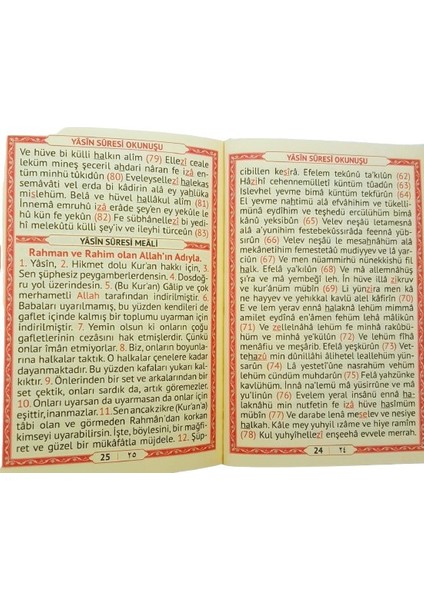 YÂSÎN SÛRESİ OKUNUŞU
cibillen kesîrâ. Efelem tekûnû ta'kılûn (62)
Hâzihî cehennemülletî küntüm tûadûn (63)
Islevhel yevme bimâ küntüm tekfürûn (64)
El yevme nahtimü alâ efvâhihim ve tükelli-
münâ eydîhim ve teşhedü ercülühüm bimâ
kânû yeksibûn (65) Velev neşâü letamesnâ
alâ a'yunihim festebekussırâta feennâ yübsirûn
(66) Velev neşâü le mesahnâhüm alâ
mekânetihim femestetâû mudiyyev ve lâ yarciûn
(67) Ve men nüammirhü nünekkishü fil
halk. Efelâ ya'kilûn (68) Ve mâ allemnâhüş
şi'ra ve mâ yembeğî leh. İn hüve illâ zikruv
ve kur'ânüm mübîn (69) Li yünzira men kâ
ne hayyev ve yehıkkal kavlü alel kâfirîn (70)
E ve lem yerav ennâ halaknâ lehüm mimmâ
amilet eydînâ en'âmen fehüm lehâ mâlikûn
(71) Ve zellelnâhâ lehüm fe minhâ rakûbü-
hüm ve minhâ ye'külûn (72) Ve lehüm fîhâ
menâfiu ve meşârib. Efelâ yeşkürûn (73) Vet-
tehazû min dûnillâhi âlihetel leallehüm yün-
sarûn (74) Lâ yestetîûne nasrahüm ve hüm
lehüm cündüm muhdarûn (75) Felâ yahzünke
kavlühüm. İnnâ na'lemü mâ yüsirrûne ve mâ
yu'linûn (76) Evelem yeral insânü ennâ ha-
laknâhü min nutfetin fe izâ hüve hasîmüm
mübîn (77) Ve darabe lenâ meselev ve nesiye
halkah. Kâle mey yuhyil ızâme ve hiye ramîm
(78) Kul yuhyîhellezî enşeehâ evvele merrah.
24 ٢٤
YÂSÎN SÛRESİ OKUNUŞU
Ve hüve bi külli halkın alîm (79) Ellezî ceale
leküm mineş şeceril ahdari nâran fe izâ en-
tüm minhü tûkidûn (80) Eveleysellezî halekas
semâvâti vel erda bi kâdirin alâ ey yahlüka
mislehüm. Belâ ve hüvel hallâkul alîm (81)
İnnemâ emruhû izâ erâde şey'en ey yekûle le
hû kün fe yekûn (82) Fe sübhânellezî bi yedi-
hî melekûtü külli şey'iv ve ileyhi türceûn (83)
YÂSÎN SÛRESİ MEÂLİ
Rahman ve Rahim olan Allah'ın Adıyla.
1. Yâsîn, 2. Hikmet dolu Kur'an hakkı için, 3.
Sen şüphesiz peygamberlerdensin. 4. Dosdoğ-
ru yol üzerindesin. 5. (Bu Kur'an) Gâlip ve çok
merhametli Allah tarafından indirilmiştir. 6.
Babaları uyarılmamış, bu yüzden kendileri de
gaflet içinde kalmış bir toplumu uyarman için
indirilmiştir. 7. Yemin olsun ki onların çoğu
gafletlerinin cezâsını hak etmişlerdir. Çünkü
onlar îman etmiyorlar. 8. Biz, onların boyunla-
rına halkalar taktık. O halkalar çenelere kadar
dayanmaktadır. Bu yüzden kafaları yukarı kal-
kıktır. 9. Önlerinden bir set ve arkalarından bir
set çektik, onları sardık da, artık göremezler.
10. Onları uyarsan da uyarmasan da onlar için
eşittir, inanmazlar. 11. Sen ancak zikre (Kur'an'a)
tâbi olan ve görmeden Rahmân'dan korkan
kimseyi uyarabilirsin. İşte, böylesini, bir mağfi-
ret ve güzel bir mükâfatla müjdele. 12. Şüp-
25 ٢٥